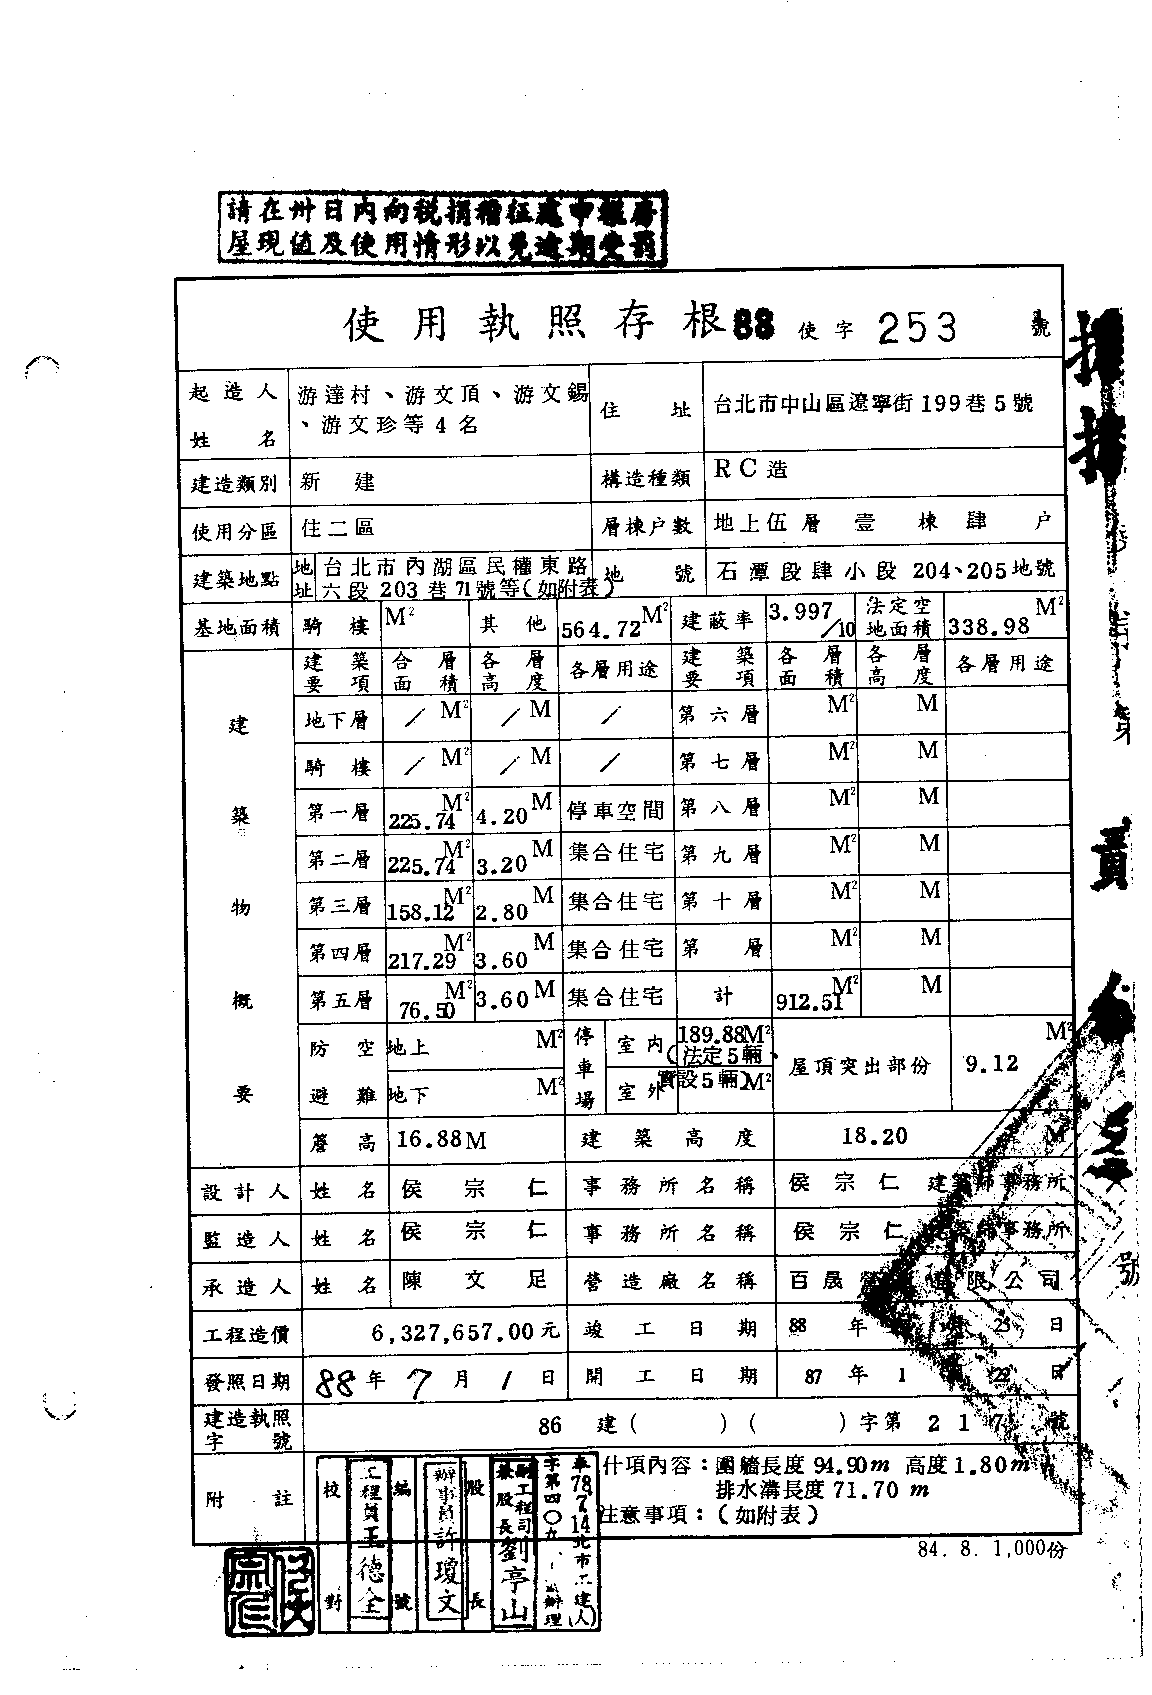 請在卅日內向稅捐稽征處申報房
屋現值及使用情形以免逾期受罰
使用執照存根 88 使字 253 號
起造人姓名 游達村、游文頂、游文錫、游文珍等4名 住址 台北市中山區遼寧街199巷5號
建造類別 新建 構造種類 RC造
使用分區 住二區 層棟戶數 地上伍層壹棟肆戶
建築地點 地址 台北市內湖區民權東路六段203巷71號等(如附表) 地號 石潭段肆小段204、205地號
基地面積 騎樓 M² 其他 564.72M² 建蔽率 3.997/10 法定空地面積 338.98M²
建築物概要
建築要項 合層面積 各層高度 各層用途 建築要項 各層面積 各層高度 各層用途
地下層 / M² / M / 第六層 M² M
騎樓 / M² / M / 第七層 M² M
第一層 225.74 M² 4.20 M 停車空間 第八層 M² M
第二層 225.74 M² 3.20 M 集合住宅 第九層 M² M
第三層 158.12 M² 2.80 M 集合住宅 第十層 M² M
第四層 217.29 M² 3.60 M 集合住宅 第 層 M² M
第五層 76.50 M² 3.60 M 集合住宅 計 912.51 M² M
防空避難 地上 M² 停車場 室內 189.88M² (法定5輛、 屋頂突出部份 9.12 M²
地下 M² 室外 實設5輛) M²
簷高 16.88M 建築高度 18.20 M
設計人 姓名 侯宗仁 事務所名稱 侯宗仁建築師事務所
監造人 姓名 侯宗仁 事務所名稱 侯宗仁建築師事務所
承造人 姓名 陳文足 營造廠名稱 百晟 限公司
工程造價 6,327,657.00元 竣工日期 88年 月 日
發照日期 88年7月1日 開工日期 87年1 日
建造執照字號 86建( )( )字第217號
附註
什項內容：圍牆長度94.90m 高度1.80m
排水溝長度71.70m
注意事項：(如附表)
校對 工程員王德全
編號 辦事員許瓊文
股長 副工程司 兼股長 劉亭山
78.7.14北市工建(人)
字第四〇九 辦理
84. 8. 1,000份
號